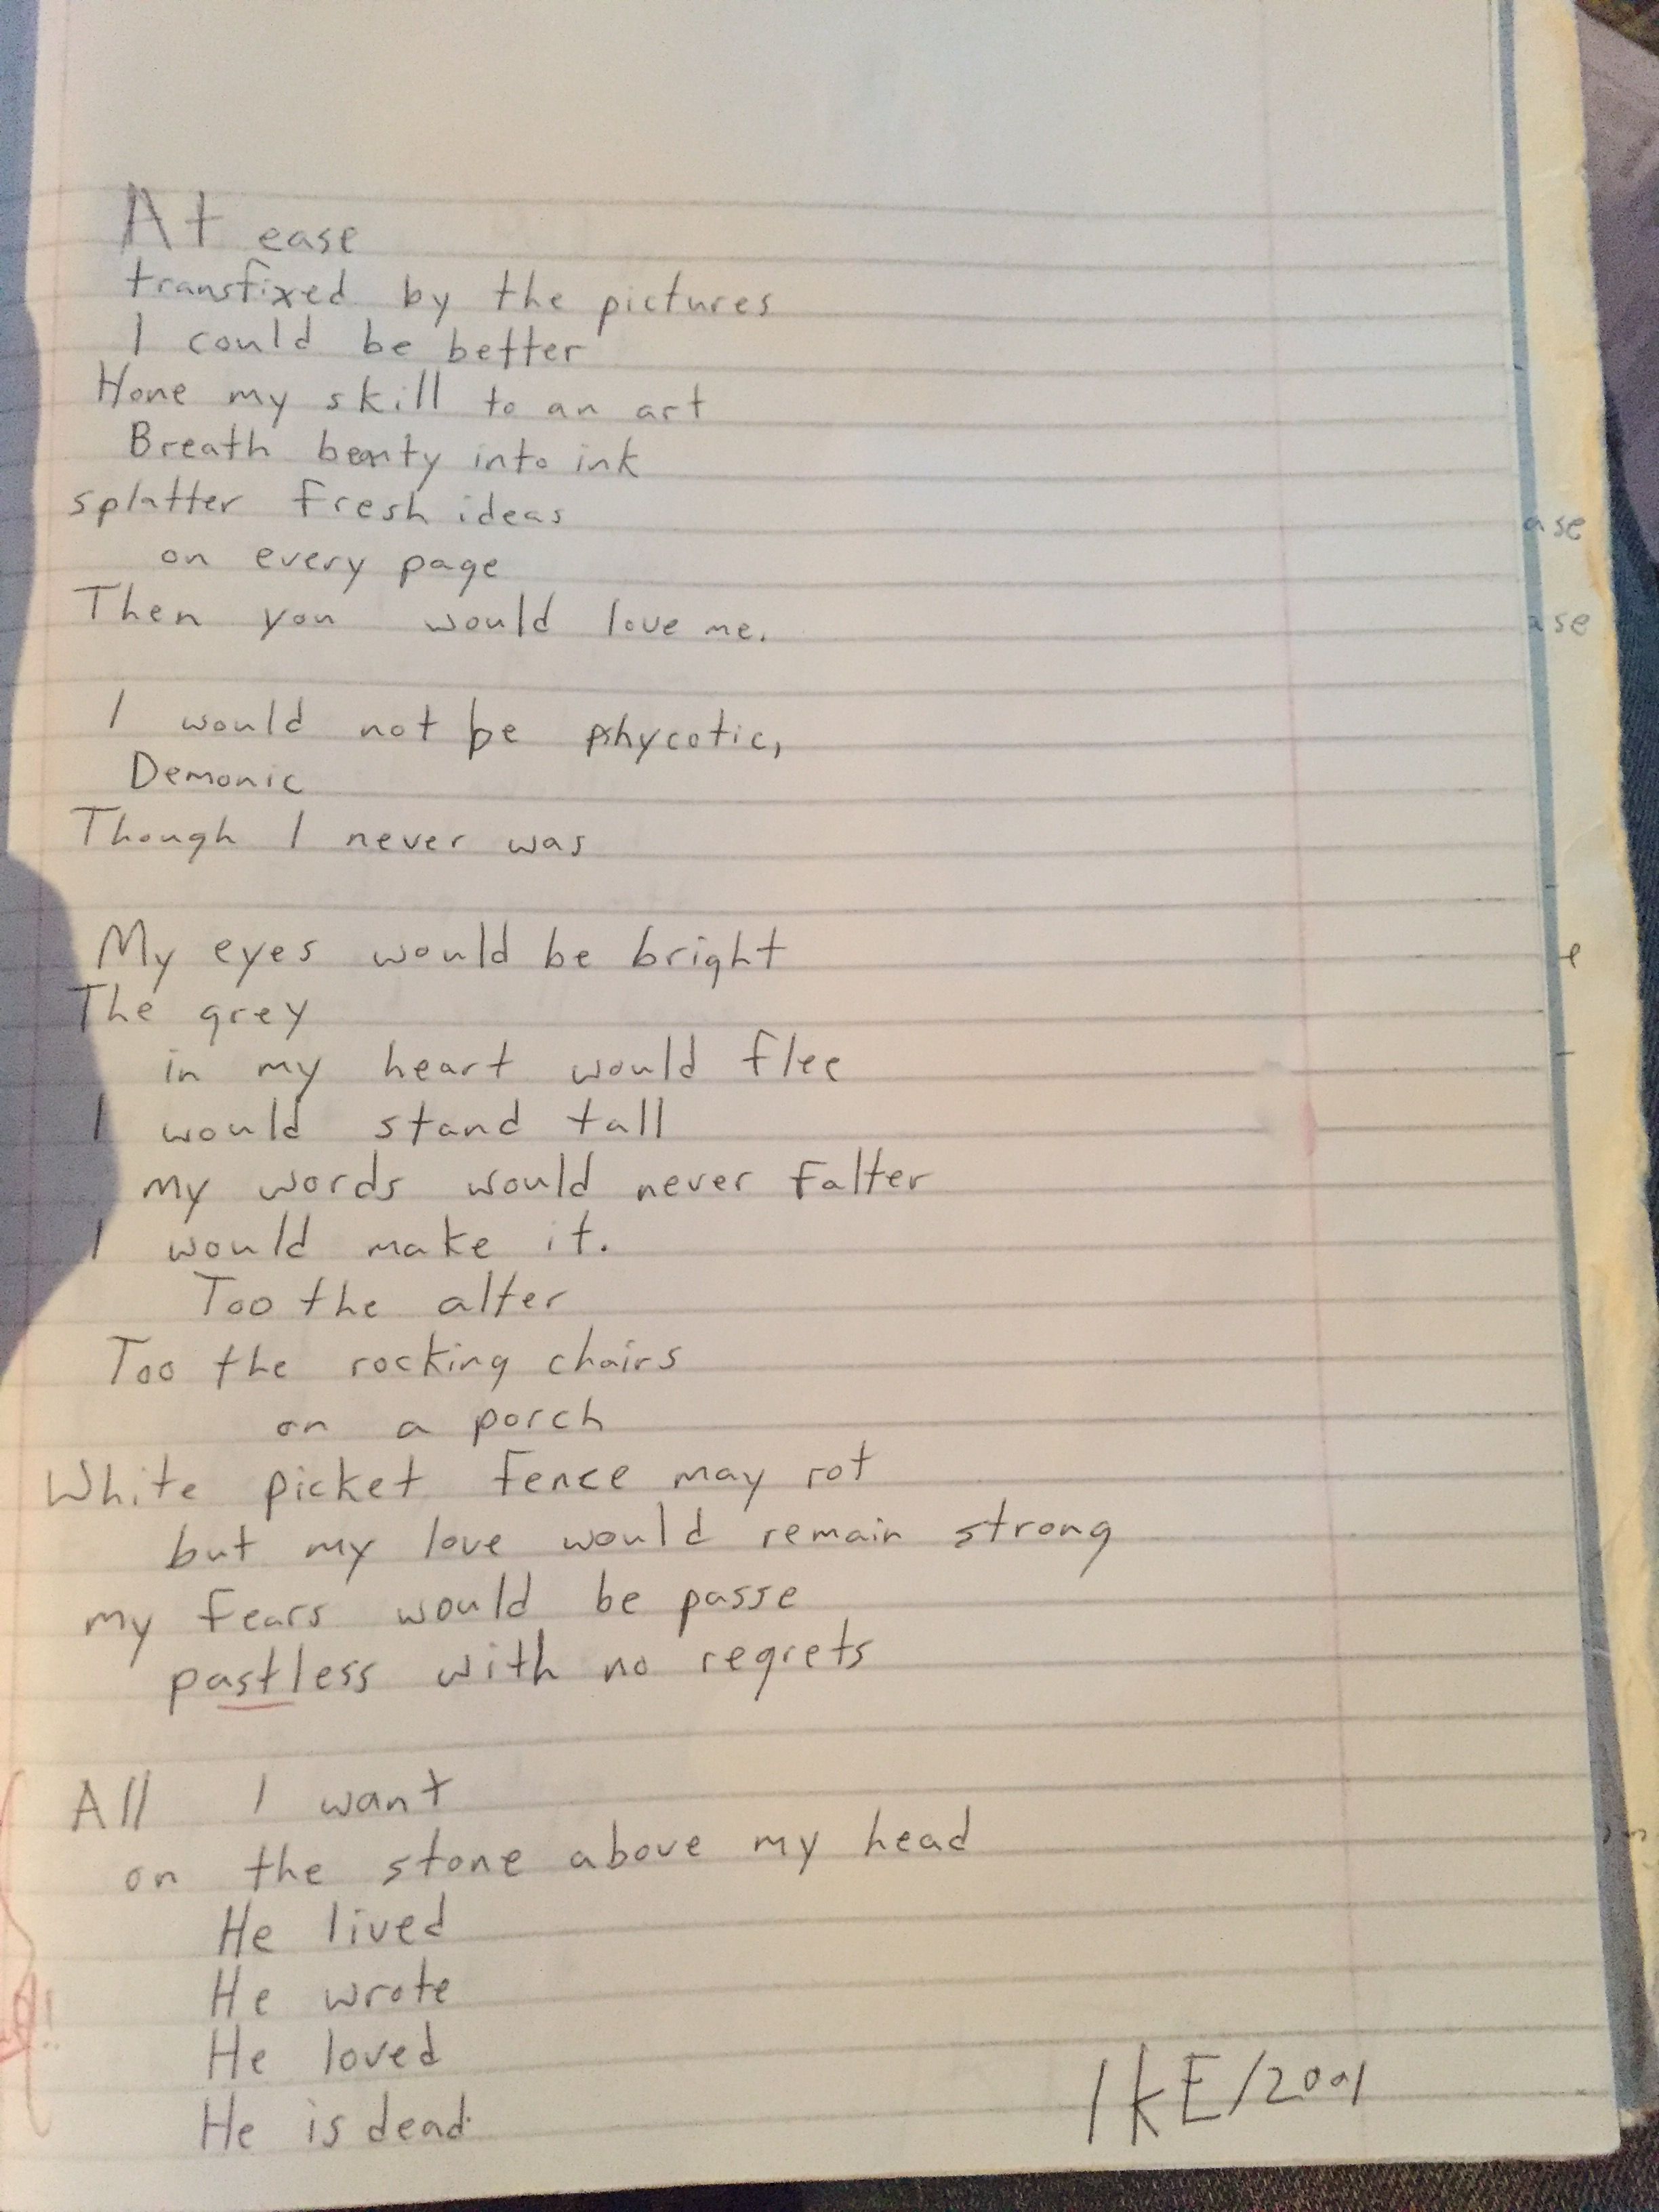 At ease
transfixed by the pictures
I could be better
Hone my skill to an art
Breath beauty into ink
splatter fresh ideas
on every page
Then you would love me.
I would not be phycotic,
Demonic
Though I never was
My eyes would be bright
The grey
in my heart would flee
I would stand tall
my words would never falter
I would make it.
Too the alter
Too the rocking chairs
on a porch
White picket fence may rot
but my love would remain strong
my fears would be passe
pastless with no regrets
All I want
on the stone above my head
He lived
He wrote
He loved
He is dead.
IKE/2001
ase
ase
e